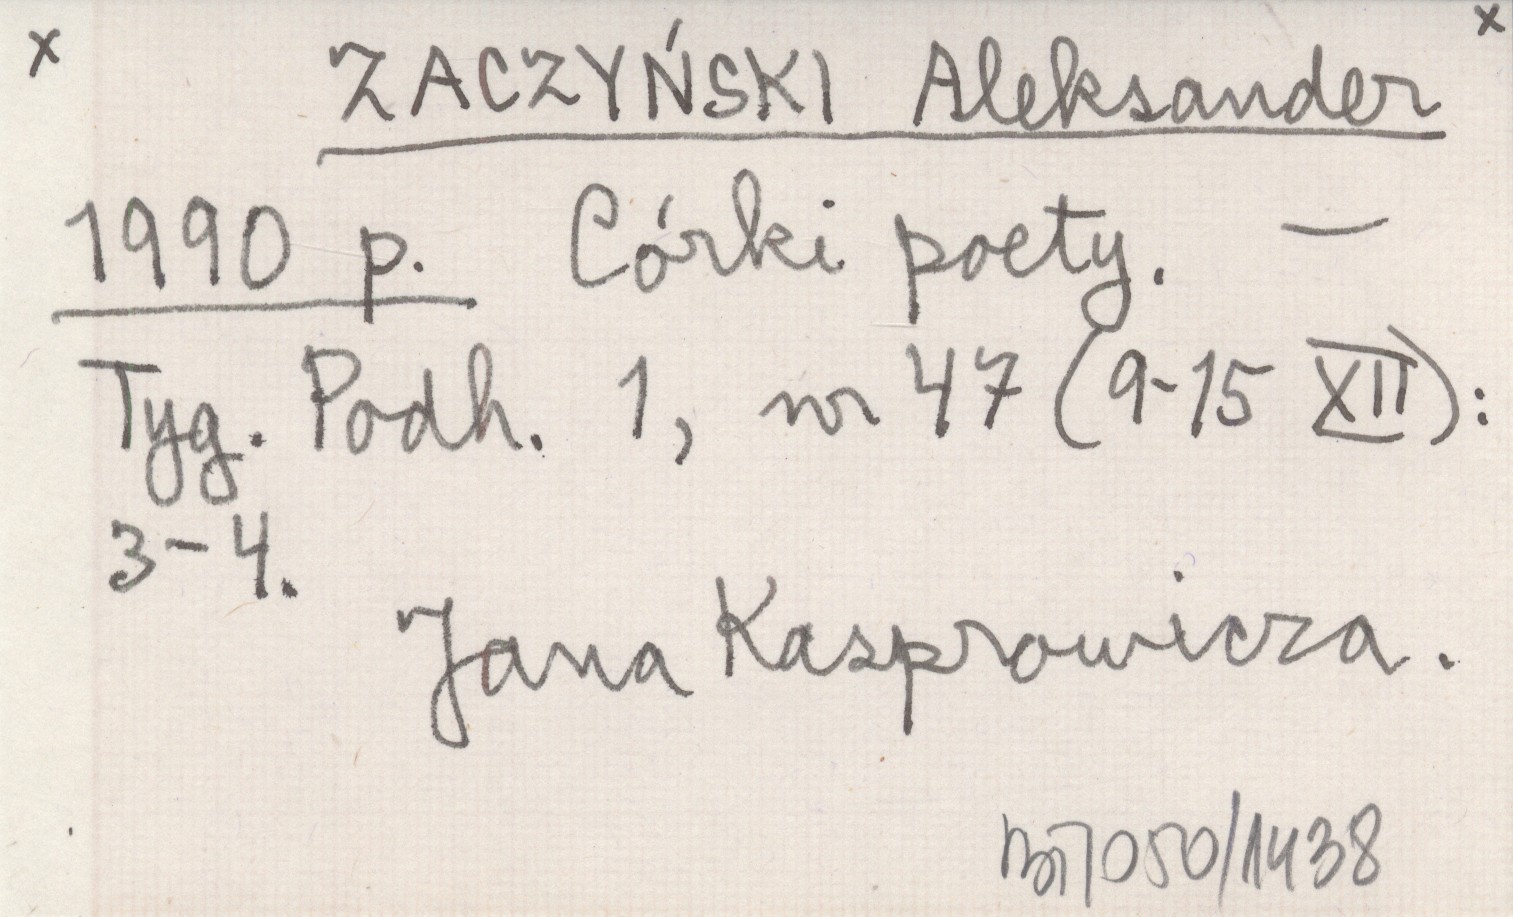 x x
ZACZYŃSKI Aleksander
1990 p. Córki poety. —
Tyg. Podh. 1, nr 47 (9-15 XII):
3-4.
Jana Kasprowicza.
050/1438